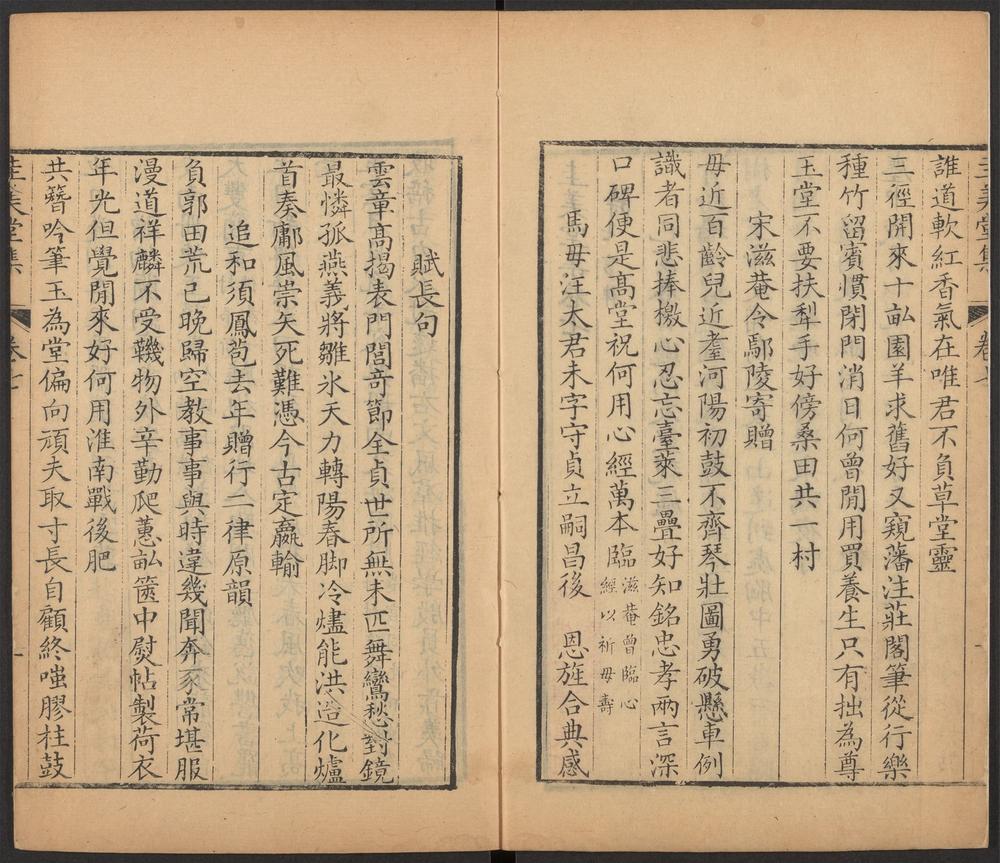 誰道軟紅香氣在唯君不負草堂靈
三徑開來十畝園羊求舊好又窺藩注莊閣筆從行樂
種竹留賓慣閉門消日何曾閒用買養生只有拙為尊
玉堂不要扶犁手好傍桑田共一村
宋滋菴令鄢陵寄贈
母近百齡兒近耋河陽初鼓不齊琴壯圖勇破懸車例
識者同悲捧檄心忍忘臺萊三疊好知銘忠孝兩言深
口碑便是高堂祝何用心經萬本臨
滋菴曾臨心
經以祈母壽
馬母汪太君未字守貞立嗣昌後 恩旌合典感
賦長句
雲章高揭表門閭奇節全貞世所無未匹舞鸞愁對鏡
最憐孤燕義將雛氷天力轉陽春脚冷燼能洪造化爐
首奏鄘風崇矢死難憑今古定嬴輸
追和須鳳苞去年贈行二律原韻
負郭田荒已晚歸空教事事與時違幾聞奔豕常堪服
漫道祥麟不受鞿物外辛勤爬蕙畝篋中熨帖製荷衣
年光但覺閒來好何用淮南戰後肥
共簪吟筆玉為堂偏向頑夫取寸長自顧終嗤膠柱鼓
卷七